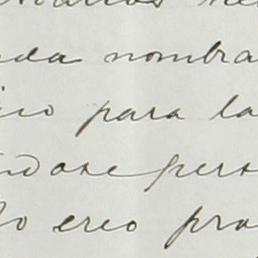 da nombra
ico para la
ndose pers
lo creo pra